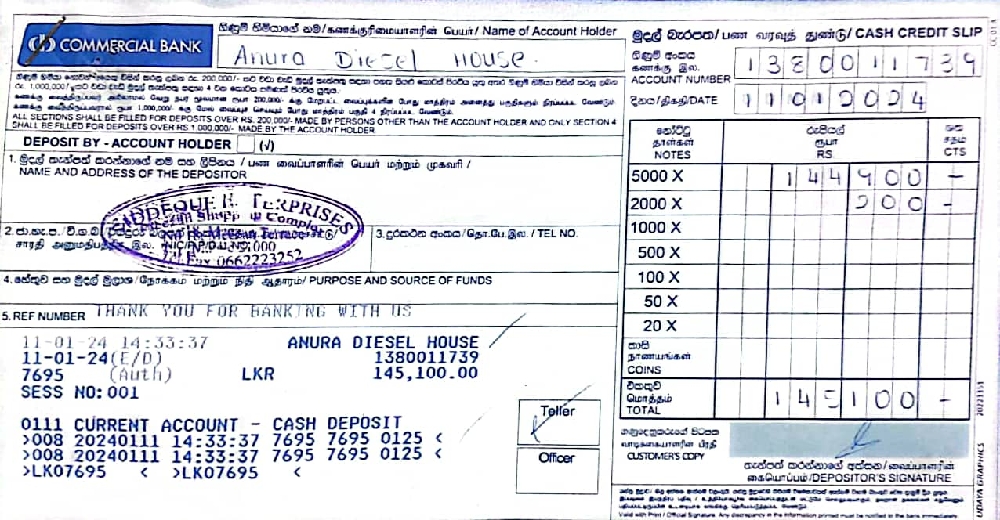 COMMERCIAL BANK
ගිණුම් හිමියාගේ නම/கணக்குரிமையாளரின் பெயர்/ Name of Account Holder
Anura Diesel House.
මුදල් බැරපත/ பண வரவுத் துண்டு/ CASH CREDIT SLIP
ගිණුම් අංකය
கணக்கு இல.
ACCOUNT NUMBER 1380011739
දිනය/திகதி/DATE 11012024
ALL SECTIONS SHALL BE FILLED FOR DEPOSITS OVER RS. 200,000/- MADE BY PERSONS OTHER THAN THE ACCOUNT HOLDER AND ONLY SECTION 4
SHALL BE FILLED FOR DEPOSITS OVER RS 1,000,000/- MADE BY THE ACCOUNT HOLDER
DEPOSIT BY - ACCOUNT HOLDER (√)
1. මුදල් තැන්පත් කරන්නාගේ නම සහ ලිපිනය / பண வைப்பாளரின் பெயர் மற்றும் முகவரி /
NAME AND ADDRESS OF THE DEPOSITOR
TERPRISES
Fax 0662223252
3.දුරකථන අංකය/தொ.பே.இல. / TEL NO.
4.හේතුව සහ මුදල් මූලාශ්‍ර/நோக்கம் மற்றும் நிதி ஆதாரம்/ PURPOSE AND SOURCE OF FUNDS
5. REF NUMBER THANK YOU FOR BANKING WITH US
11-01-24 14:33:37 ANURA DIESEL HOUSE
11-01-24(E/D) 1380011739
7695 (Auth) LKR 145,100.00
SESS NO:001
0111 CURRENT ACCOUNT - CASH DEPOSIT
>008 20240111 14:33:37 7695 7695 0125 <
>008 20240111 14:33:37 7695 7695 0125 <
>LK07695 < >LK07695 <
Teller
Officer
නෝට්ටු රුපියල් ශත
தாள்கள் ரூபா சதம்
NOTES RS. CTS
5000 X 144900 -
2000 X 200 -
1000 X
500 X
100 X
50 X
20 X
කාසි
நாணயங்கள்
COINS
එකතුව
மொத்தம்
TOTAL 145100 -
ගනුදෙනුකරුගේ පිටපත
வாடிக்கையாளரின் பிரதி
CUSTOMER'S COPY
තැන්පත් කරන්නාගේ අත්සන/வைப்பாளரின்
கையொப்பம்/DEPOSITOR'S SIGNATURE
UDAYA GRAPHICS